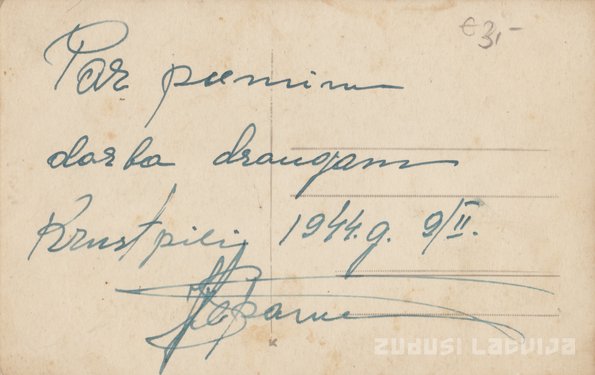 € 3,-
Par piemiņu
darba draugam
Krustpilī, 1944.g. 9/II.
ZUDUSI LATVIJA